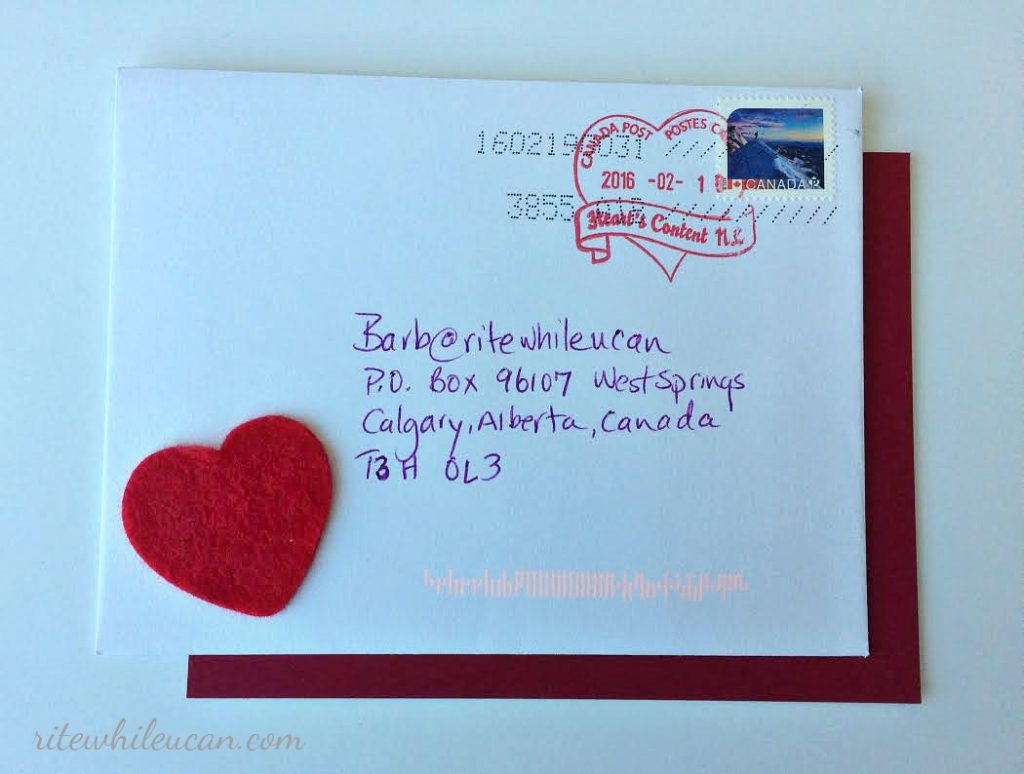 CANADA POST POSTES
1602199031
2016 -02- 1
3855
Heart's Content NL
CANADA P
Barb@ritewhileucan
P.O. BOX 96107 WestSprings
Calgary, Alberta, Canada
T3H 0L3
ritewhileucan.com